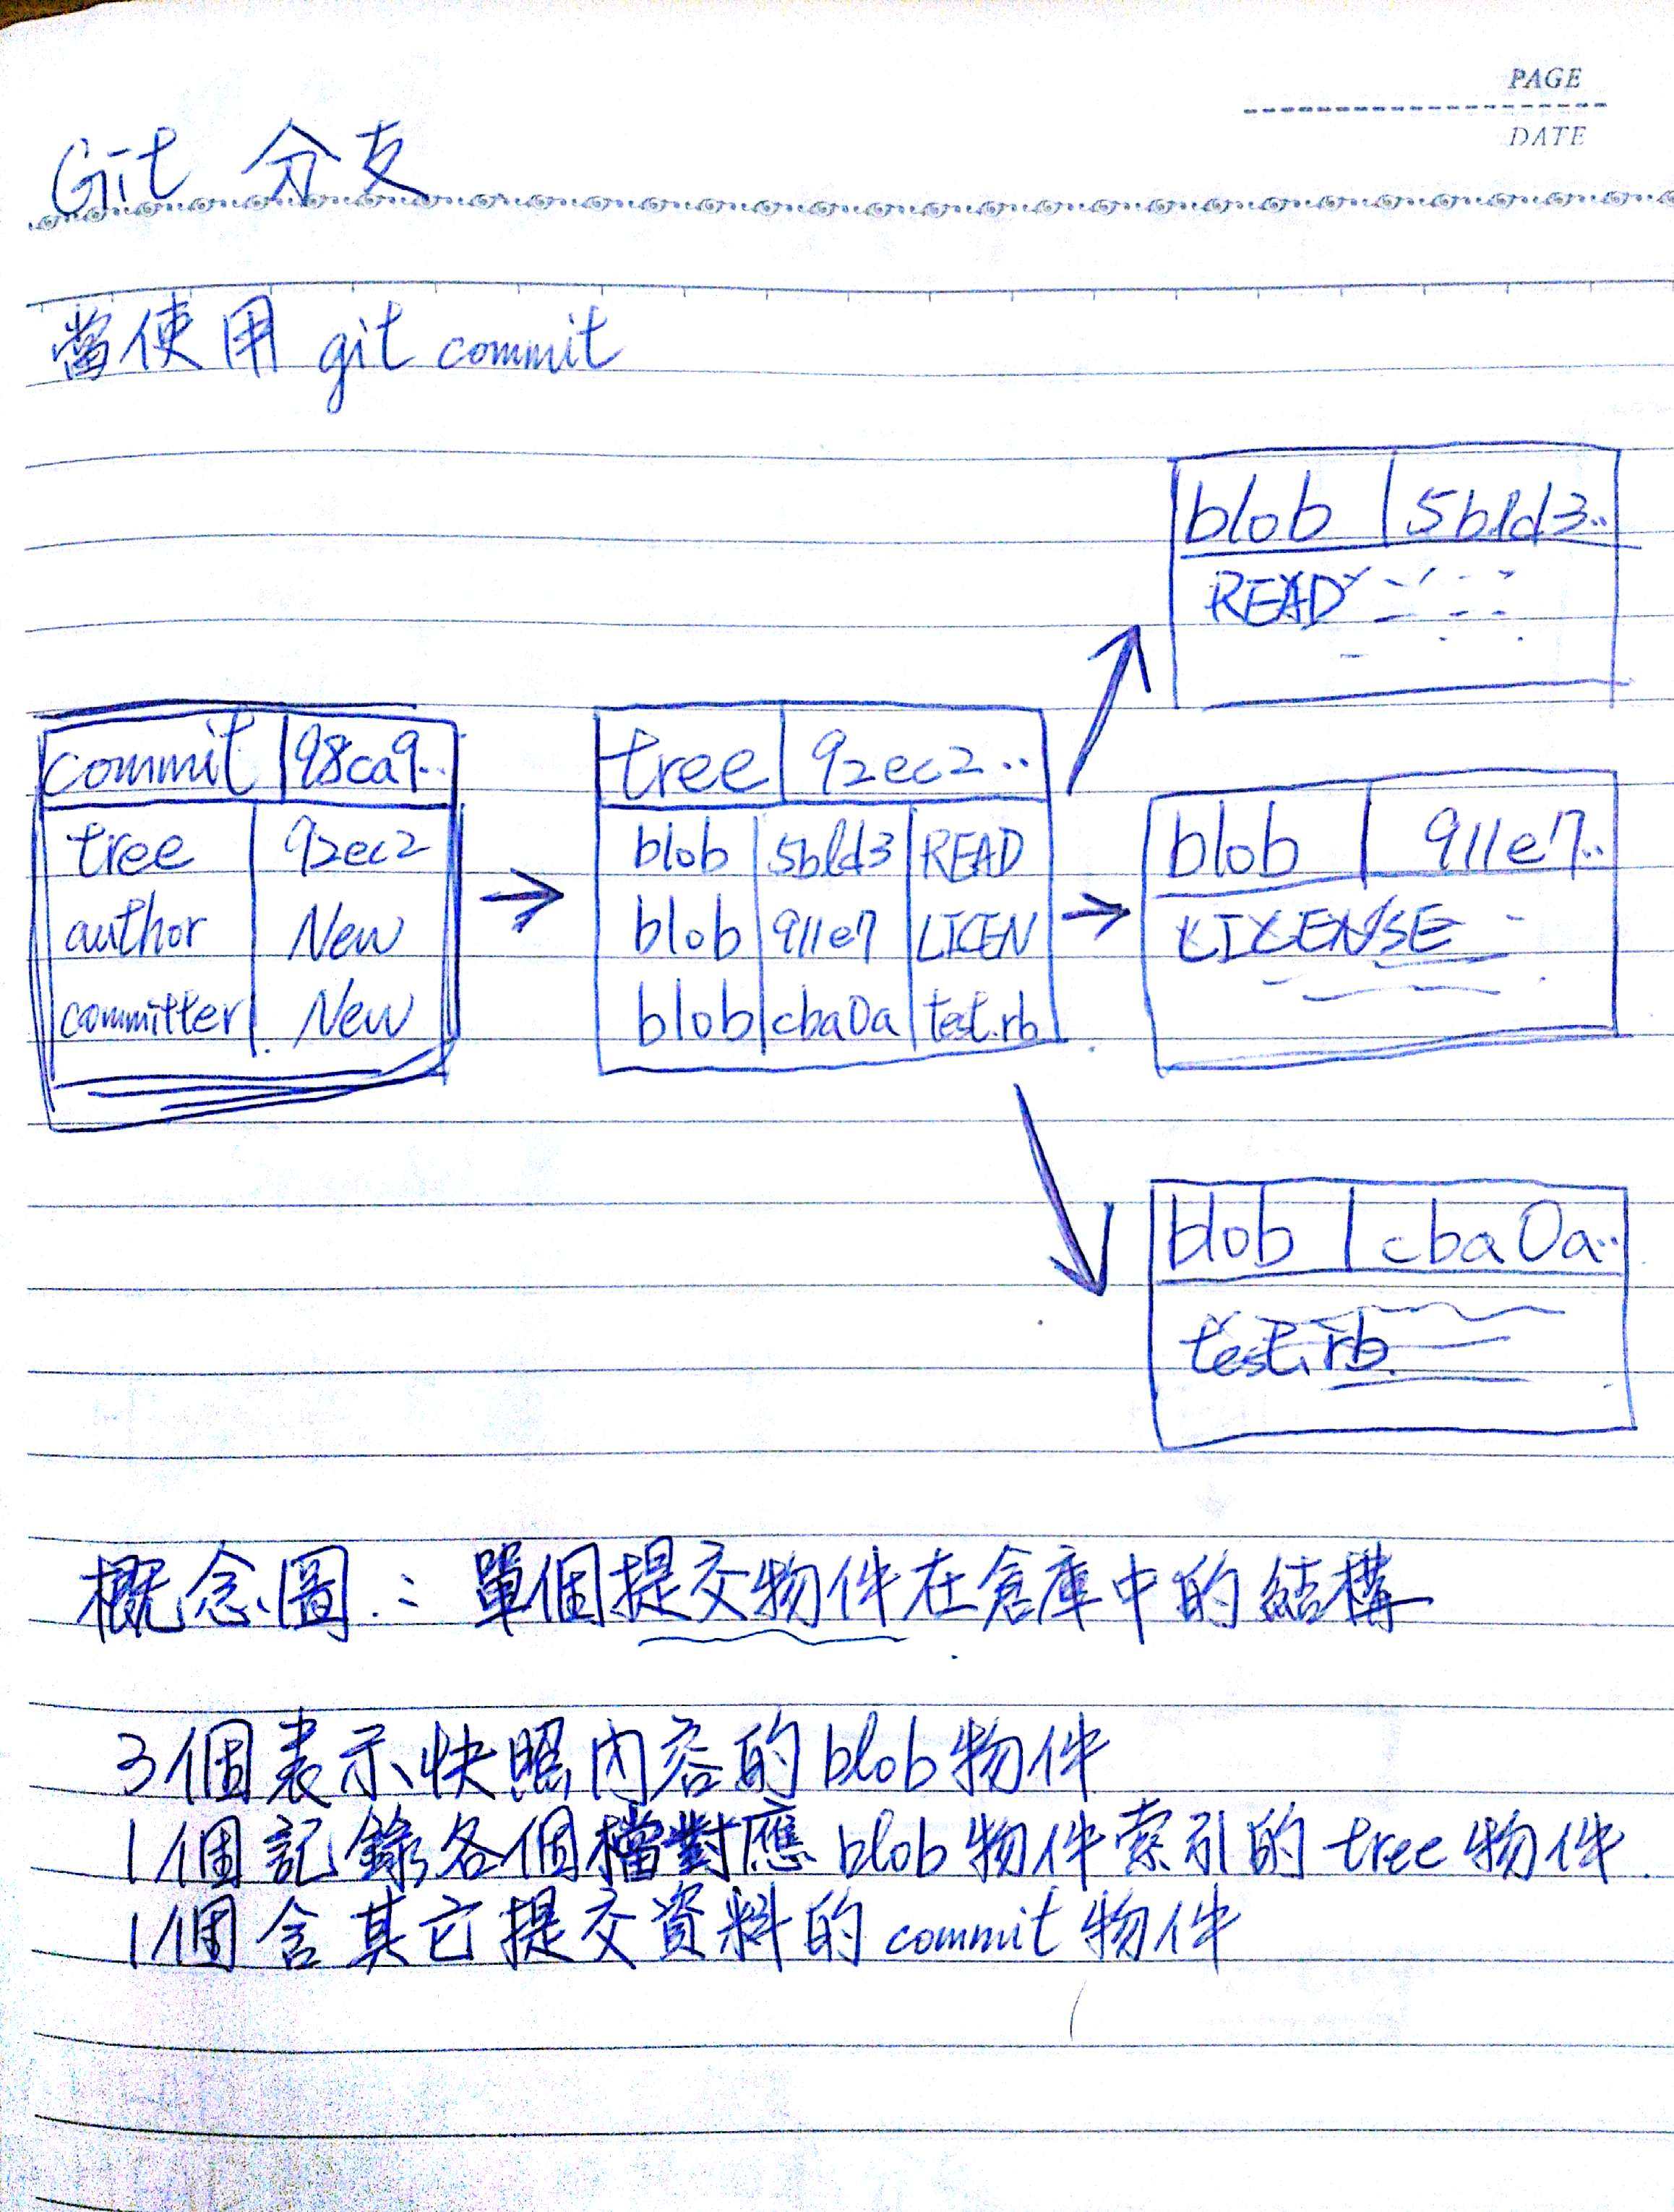 PAGE
DATE
Git 分支
當使用 git commit
blob 5b1d3..
READ
commit 98ca9..
tree 92ec2
author New
committer New
tree 92ec2..
blob 5b1d3 READ
blob 911e7 LICEN
blob cba0a test.rb
blob 911e7..
LICENSE
blob cba0a..
test.rb
概念圖：單個提交物件在倉庫中的結構
3個表示快照內容的blob物件
1個記錄各個檔對應blob物件索引的tree物件
1個含其它提交資料的commit物件